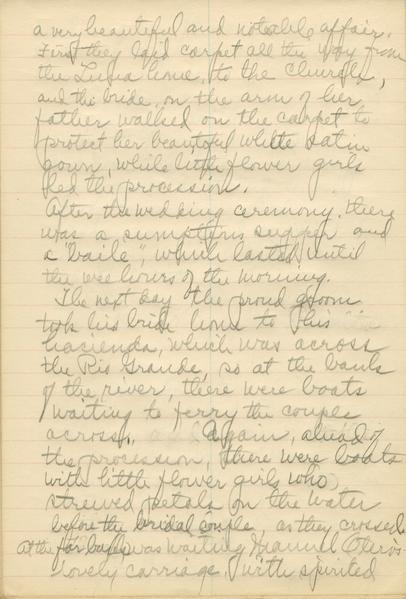 a very beautiful and noteable affair.
First they laid carpet all the way from
the Luna home, to the church,
and the bride, on the arm of her
father walked on the carpet to
protect her beautiful white satin
gown, while little flower girls
led the procession.
After the wedding ceremony, there
was a sumptous supper and
a "baile", which lasted until
the wee hours of the morning.
The next day the proud groom
took his bride home to his
hacienda, which was across
the Rio Grande, so at the banks
of the river, there were boats
waiting to ferry the couple
across. Again, ahead of
the procession, there were boats
with little flower girls who
strewed petals on the water
before the bridal couple, as they crossed
at the far bank was waiting Manuel Otero's
lovely carriage, with spirited